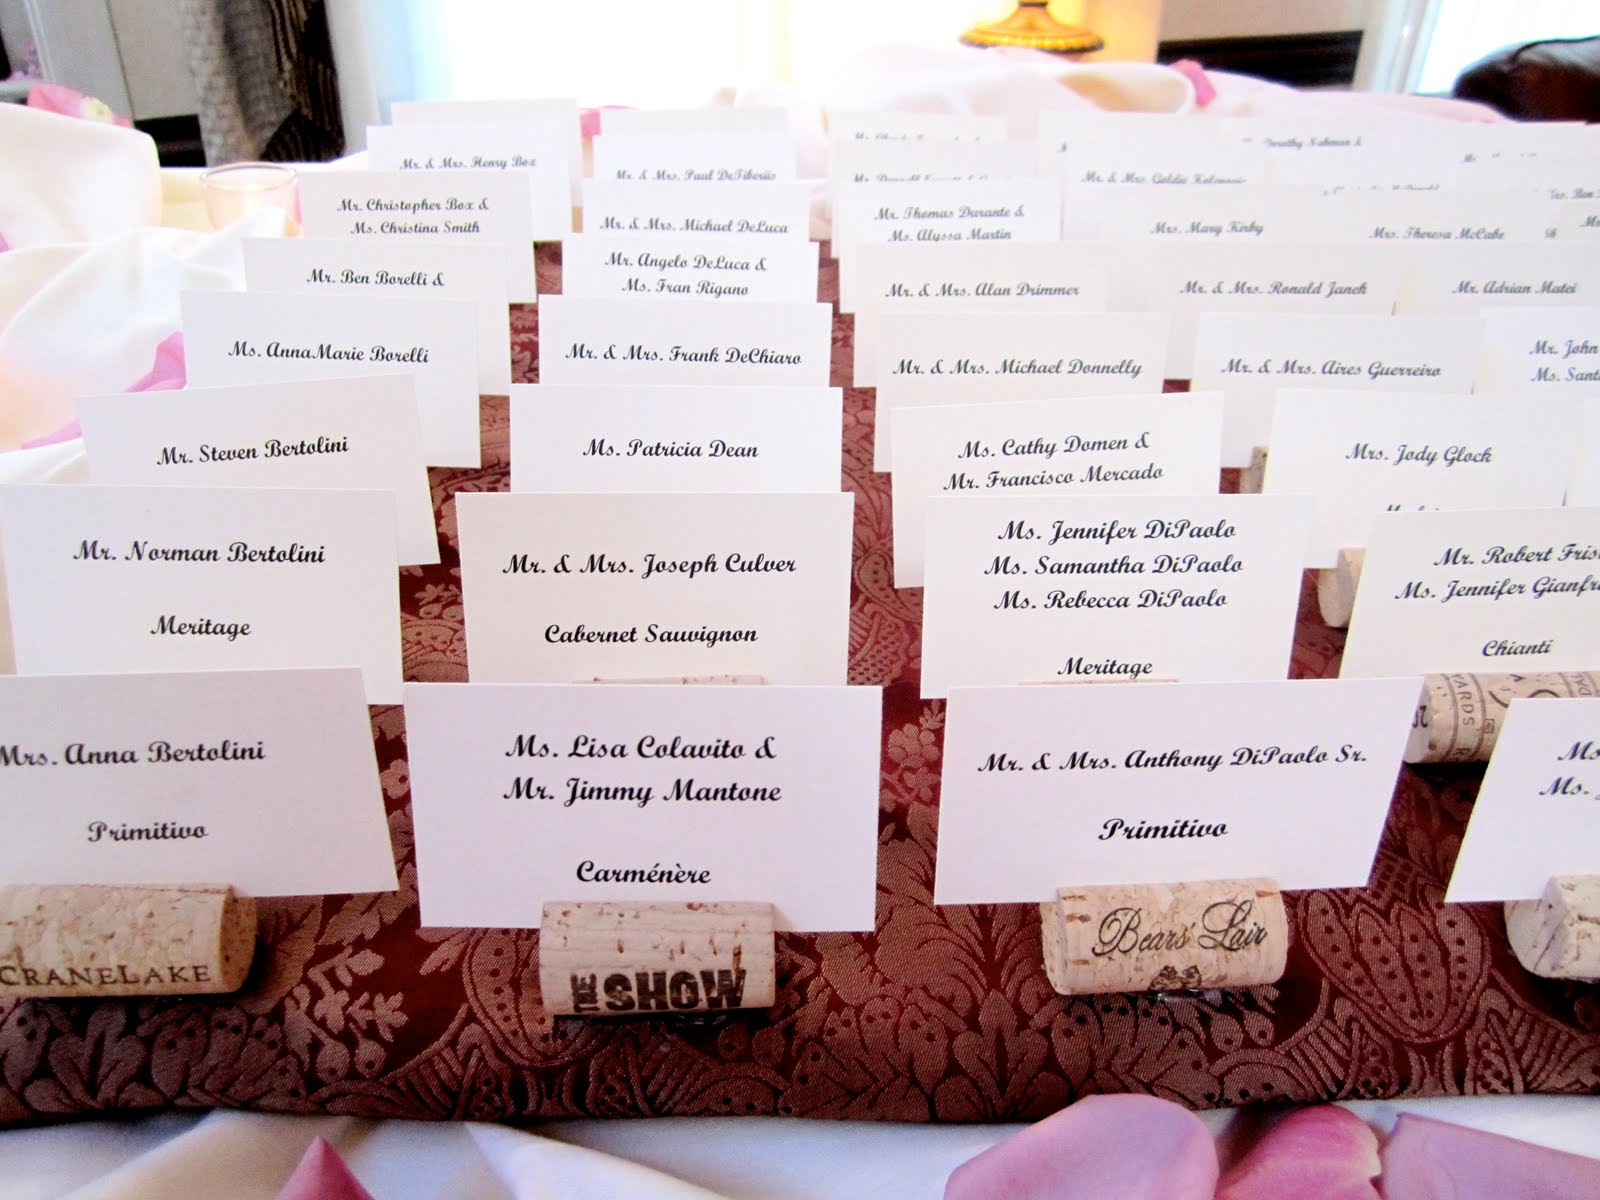 Mr. & Mrs. Henry Box
Mr. Christopher Box &
Ms. Christina Smith
Mr. Ben Borelli &
Ms. AnnaMarie Borelli
Mr. Steven Bertolini
Mr. Norman Bertolini
Meritage
Mrs. Anna Bertolini
Primitivo
CRANELAKE
Mr. & Mrs. Paul DeTiberiis
Mr. & Mrs. Michael DeLuca
Mr. Angelo DeLuca &
Ms. Fran Rigano
Mr. & Mrs. Frank DeChiaro
Ms. Patricia Dean
Mr. & Mrs. Joseph Culver
Cabernet Sauvignon
Ms. Lisa Colavito &
Mr. Jimmy Mantone
Carménère
THE SHOW
Mr. Thomas Durante &
Ms. Alyssa Martin
Mr. & Mrs. Alan Drimmer
Mr. & Mrs. Michael Donnelly
Ms. Cathy Domen &
Mr. Francisco Mercado
Ms. Jennifer DiPaolo
Ms. Samantha DiPaolo
Ms. Rebecca DiPaolo
Meritage
Mr. & Mrs. Anthony DiPaolo Sr.
Primitivo
Bears' Lair
Mr. & Mrs. Goldie
Mrs. Mary Kirby
Mr. & Mrs. Ronald Janek
Mr. & Mrs. Aires Guerreiro
Mrs. Jody Glock
Mr. Robert
Ms. Jennifer
Chianti
YARDS
Dorothy &
Mrs. Theresa McCabe
Mr. Adrian Matei
Mr. John
Ms.
Ms.
Ms.